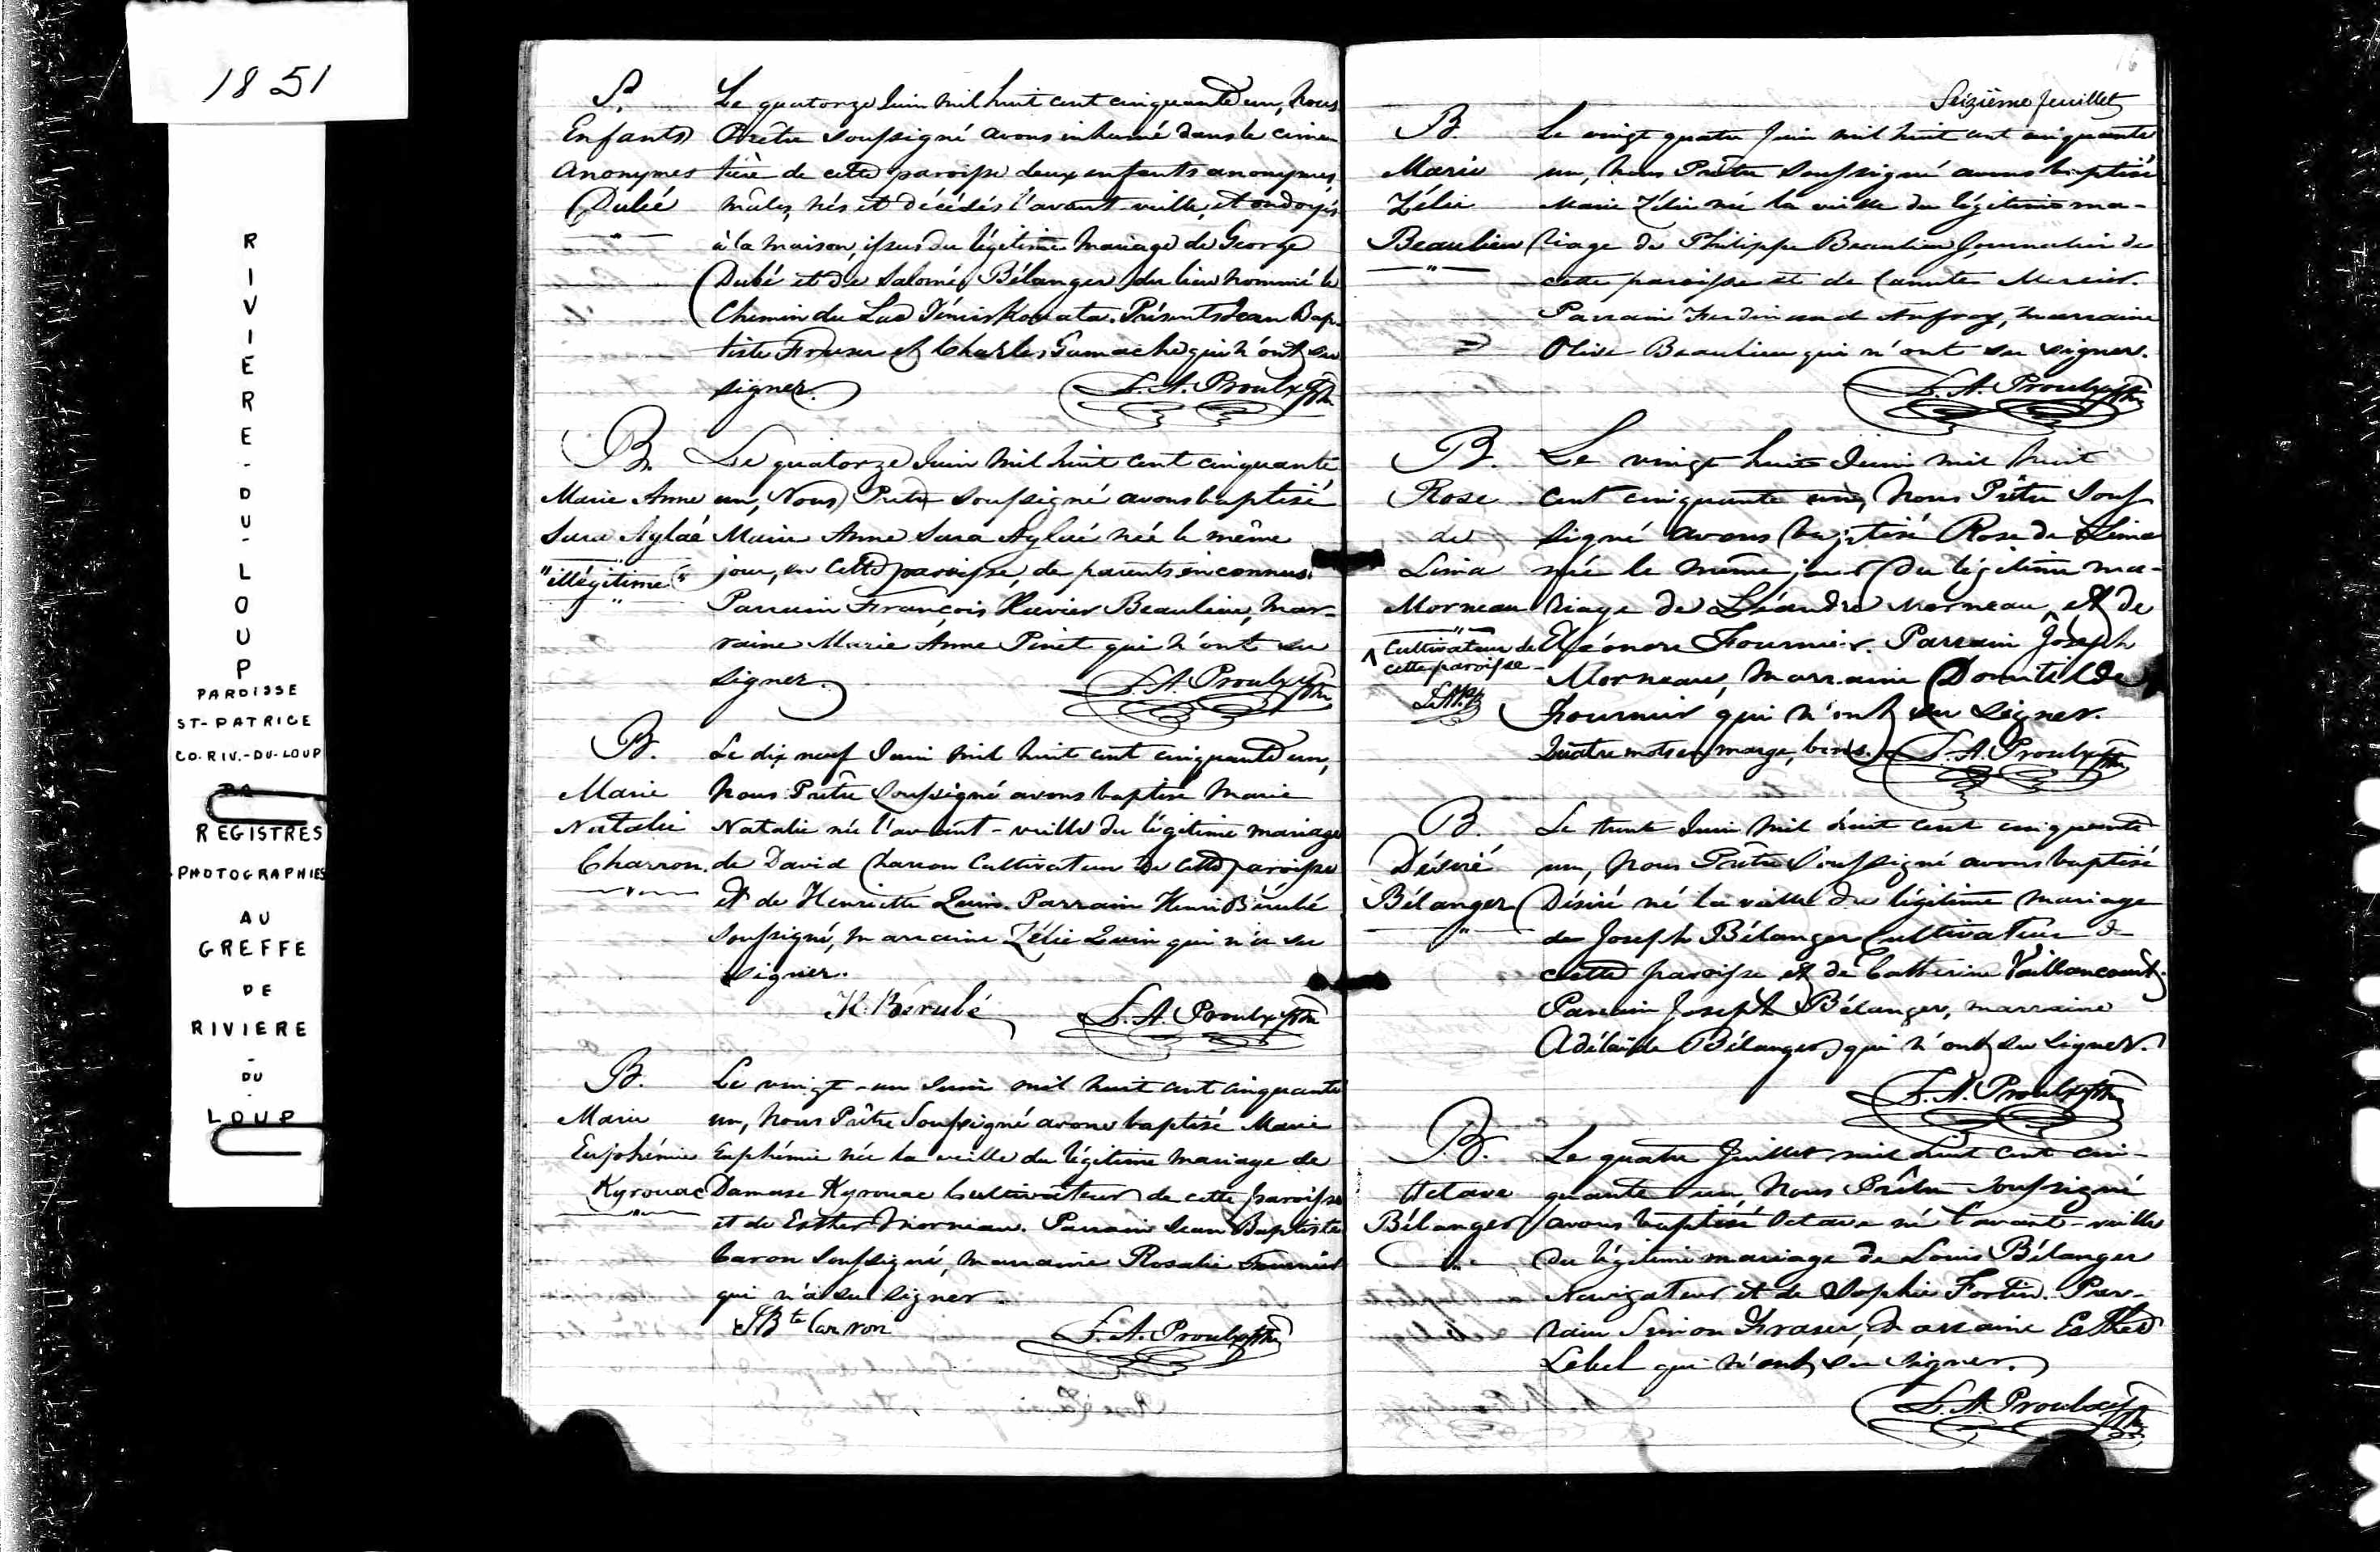 1851
RIVIERE-DU-LOUP
PAROISSE
ST-PATRICE
CO. RIV.-DU-LOUP
REGISTRES
PHOTOGRAPHIES
AU
GREFFE
DE
RIVIERE
-
DU
-
LOUP
S.
Enfants
Anonymes
Dubé
Le quatorze Juin mil huit cent cinquante un, Nous
Prêtre soussigné avons inhumé dans le cime-
tière de cette paroisse deux enfants anonymes
mâles, nés et décédés l'avant-veille, et ondoyés
à la maison, issus du légitime mariage de George
Dubé et de Salomé Bélanger du lieu nommé le
Chemin du Lac Témiskouata. Présents Jean Bap-
tiste Fraser et Charles Gamache qui n'ont su
signer. L. A. Proulx Ptre
B.
Marie Anne
Sara Aglaé
"illégitime"
Le quatorze Juin mil huit cent cinquante
un, Nous Prêtre soussigné avons baptisé
Marie Anne Sara Aglaé née le même
jour, en cette paroisse, de parents inconnus.
Parrain François Xavier Beaulieu, mar-
raine Marie Anne Pinet qui n'ont su
signer. L. A. Proulx Ptre
B.
Marie
Natalie
Charron.
Le dix neuf Juin mil huit cent cinquante un,
Nous Prêtre soussigné avons baptisé Marie
Natalie née l'avant-veille du légitime mariage
de David Charron Cultivateur de cette paroisse
et de Henriette Quin. Parrain Henri Bérubé
soussigné, marraine Zélie Quin qui n'a su
signer.
H. Bérubé L. A. Proulx Ptre
B.
Marie
Euphémie
Kyrouac
Le vingt-un Juin mil huit cent cinquante
un, Nous Prêtre soussigné avons baptisé Marie
Euphémie née la veille du légitime mariage de
Damase Kyrouac Cultivateur de cette paroisse
et de Esther Morneau. Parrain Jean Baptiste
Caron soussigné, marraine Rosalie Fournier
qui n'a su signer.
JBte Carron L. A. Proulx Ptre
16
Seizième feuillet
B.
Marie
Zélie
Beaulieu
Le vingt quatre Juin mil huit cent cinquante
un, Nous Prêtre soussigné avons baptisé
Marie Zélie née la veille du légitime ma-
riage de Philippe Beaulieu Journalier de
cette paroisse et de Mercier.
Parrain Ferdinand, marraine
Olive Beaulieu qui n'ont su signer.
L. A. Proulx Ptre
B.
Rose
de
Lima
Morneau
^ Cultivateur de
cette paroisse
L.A.P.
Le vingt huit Juin mil huit
cent cinquante un, Nous Prêtre sous-
signé avons baptisé Rose de Lima
née le même jour du légitime ma-
riage de Léandre Morneau ^ et de
Eléonore Fournier. Parrain Joseph
Morneau, marraine Domitilde
Fournier qui n'ont su signer.
Quatre mots en marge, bons. L. A. Proulx Ptre
B.
Désiré
Bélanger
Le trente Juin mil huit cent cinquante
un, Nous Prêtre soussigné avons baptisé
Désiré né la veille du légitime mariage
de Joseph Bélanger Cultivateur de
cette paroisse et de Catherine Vaillancourt.
Parrain Joseph Bélanger, marraine
Adélaïde Bélanger qui n'ont su signer.
L. A. Proulx Ptre
B.
Octave
Bélanger
Le quatre Juillet mil huit cent cin-
quante un, Nous Prêtre soussigné
avons baptisé Octave né l'avant-veille
du légitime mariage de Louis Bélanger
Navigateur et de Sophie Fortin. Par-
rain Simon Fraser, marraine Esther
Lebel qui n'ont su signer.
L. A. Proulx Ptre